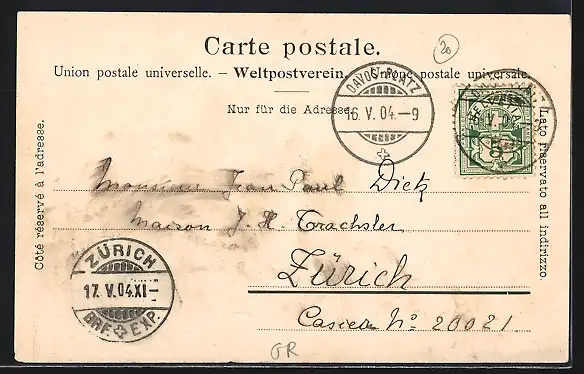 Carte postale.
20
Union postale universelle. – Weltpostverein. – Unione postale universale.
Nur für die Adresse.
DAVOS-PLATZ
16. V. 04.–9
HELVETIA
5
Côté réservé à l'adresse.
Lato riservato all indirizzo.
Monsieur Jean Paul Dietz
Maison J. H. Trachsler
Zürich
Casica No. 20021
ZÜRICH
17. V. 04. XI–
BRF. EXP.
GR